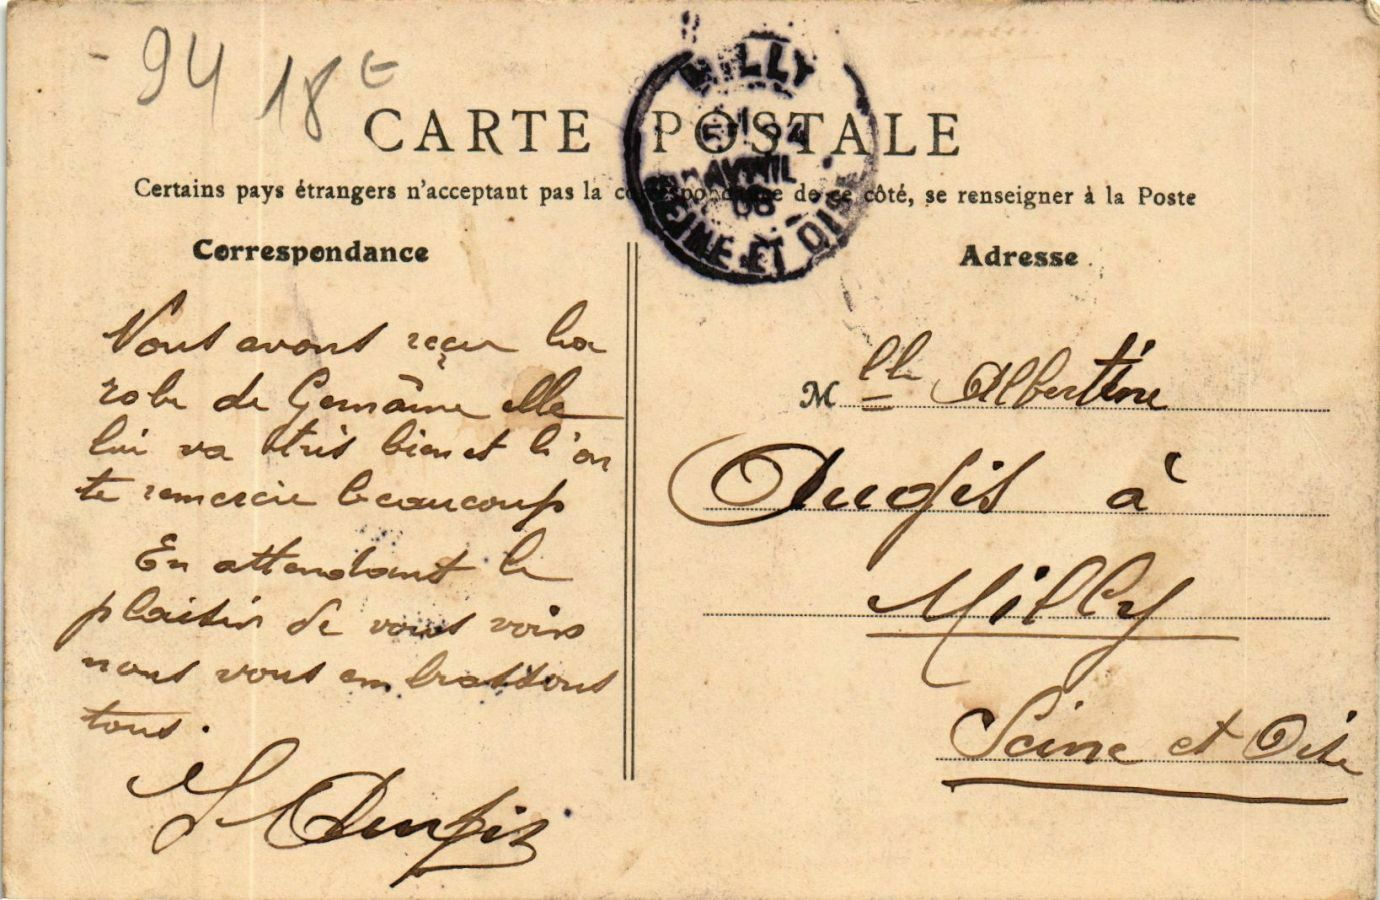 94 18 E
CARTE POSTALE
Certains pays étrangers n'acceptant pas la correspondance de ce côté, se renseigner à la Poste
MILLY
AVRIL
08
SEINE ET OISE
Correspondance
Vous avons reçu la
robe de Germaine elle
lui va très bien et l'on
te remercie beaucoup
En attendant le
plaisir de vous voir
nous vous embrassons
tous.
Adresse
Mlle Albertine
Augis à
Milly
Seine et Oise